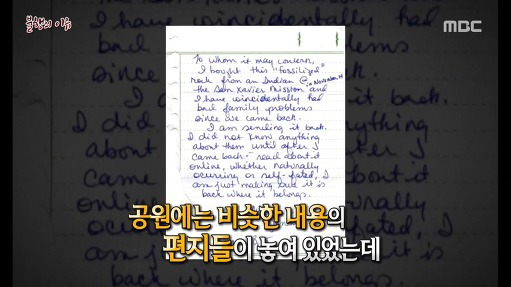 불행의 이유
MBC
To whom it may concern,
I bought this "fossilized"
rock from an Indian @ in November
the San Xavier Mission and
I have coincidentally had
bad family problems
since we came back.
I am sending it back.
I did not know anything
about them until after I
came back - read about it
online, whether naturally
occuring or self-fated, I
am just making sure it is
back where it belongs.
공원에는 비슷한 내용의
편지들이 놓여 있었는데